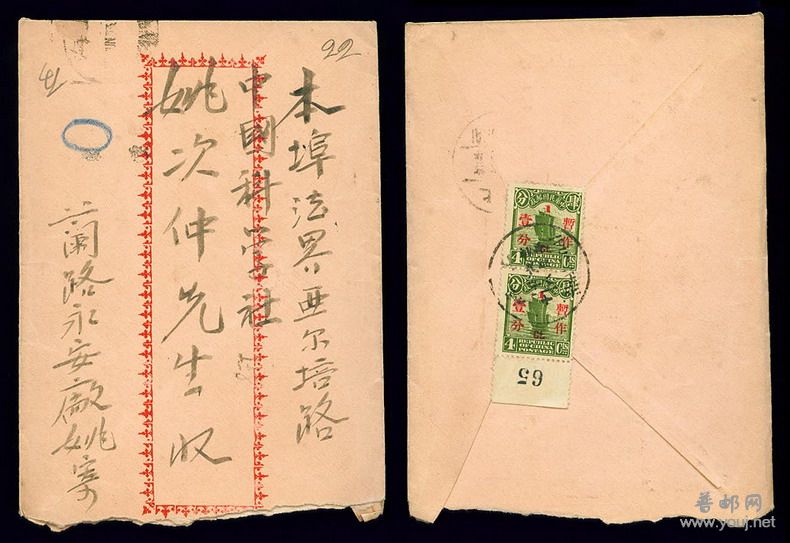 22
本埠法界亜尔培路
中國科学社
姚次仲先生收
蘭路永安廠姚寄
分 肆
暫作
壹分
1
4 Cts
REPUBLIC
OF CHINA
POSTAGE
分 肆
暫作
壹分
1
4 Cts
REPUBLIC
OF CHINA
POSTAGE
65
普邮网
www.youj.net